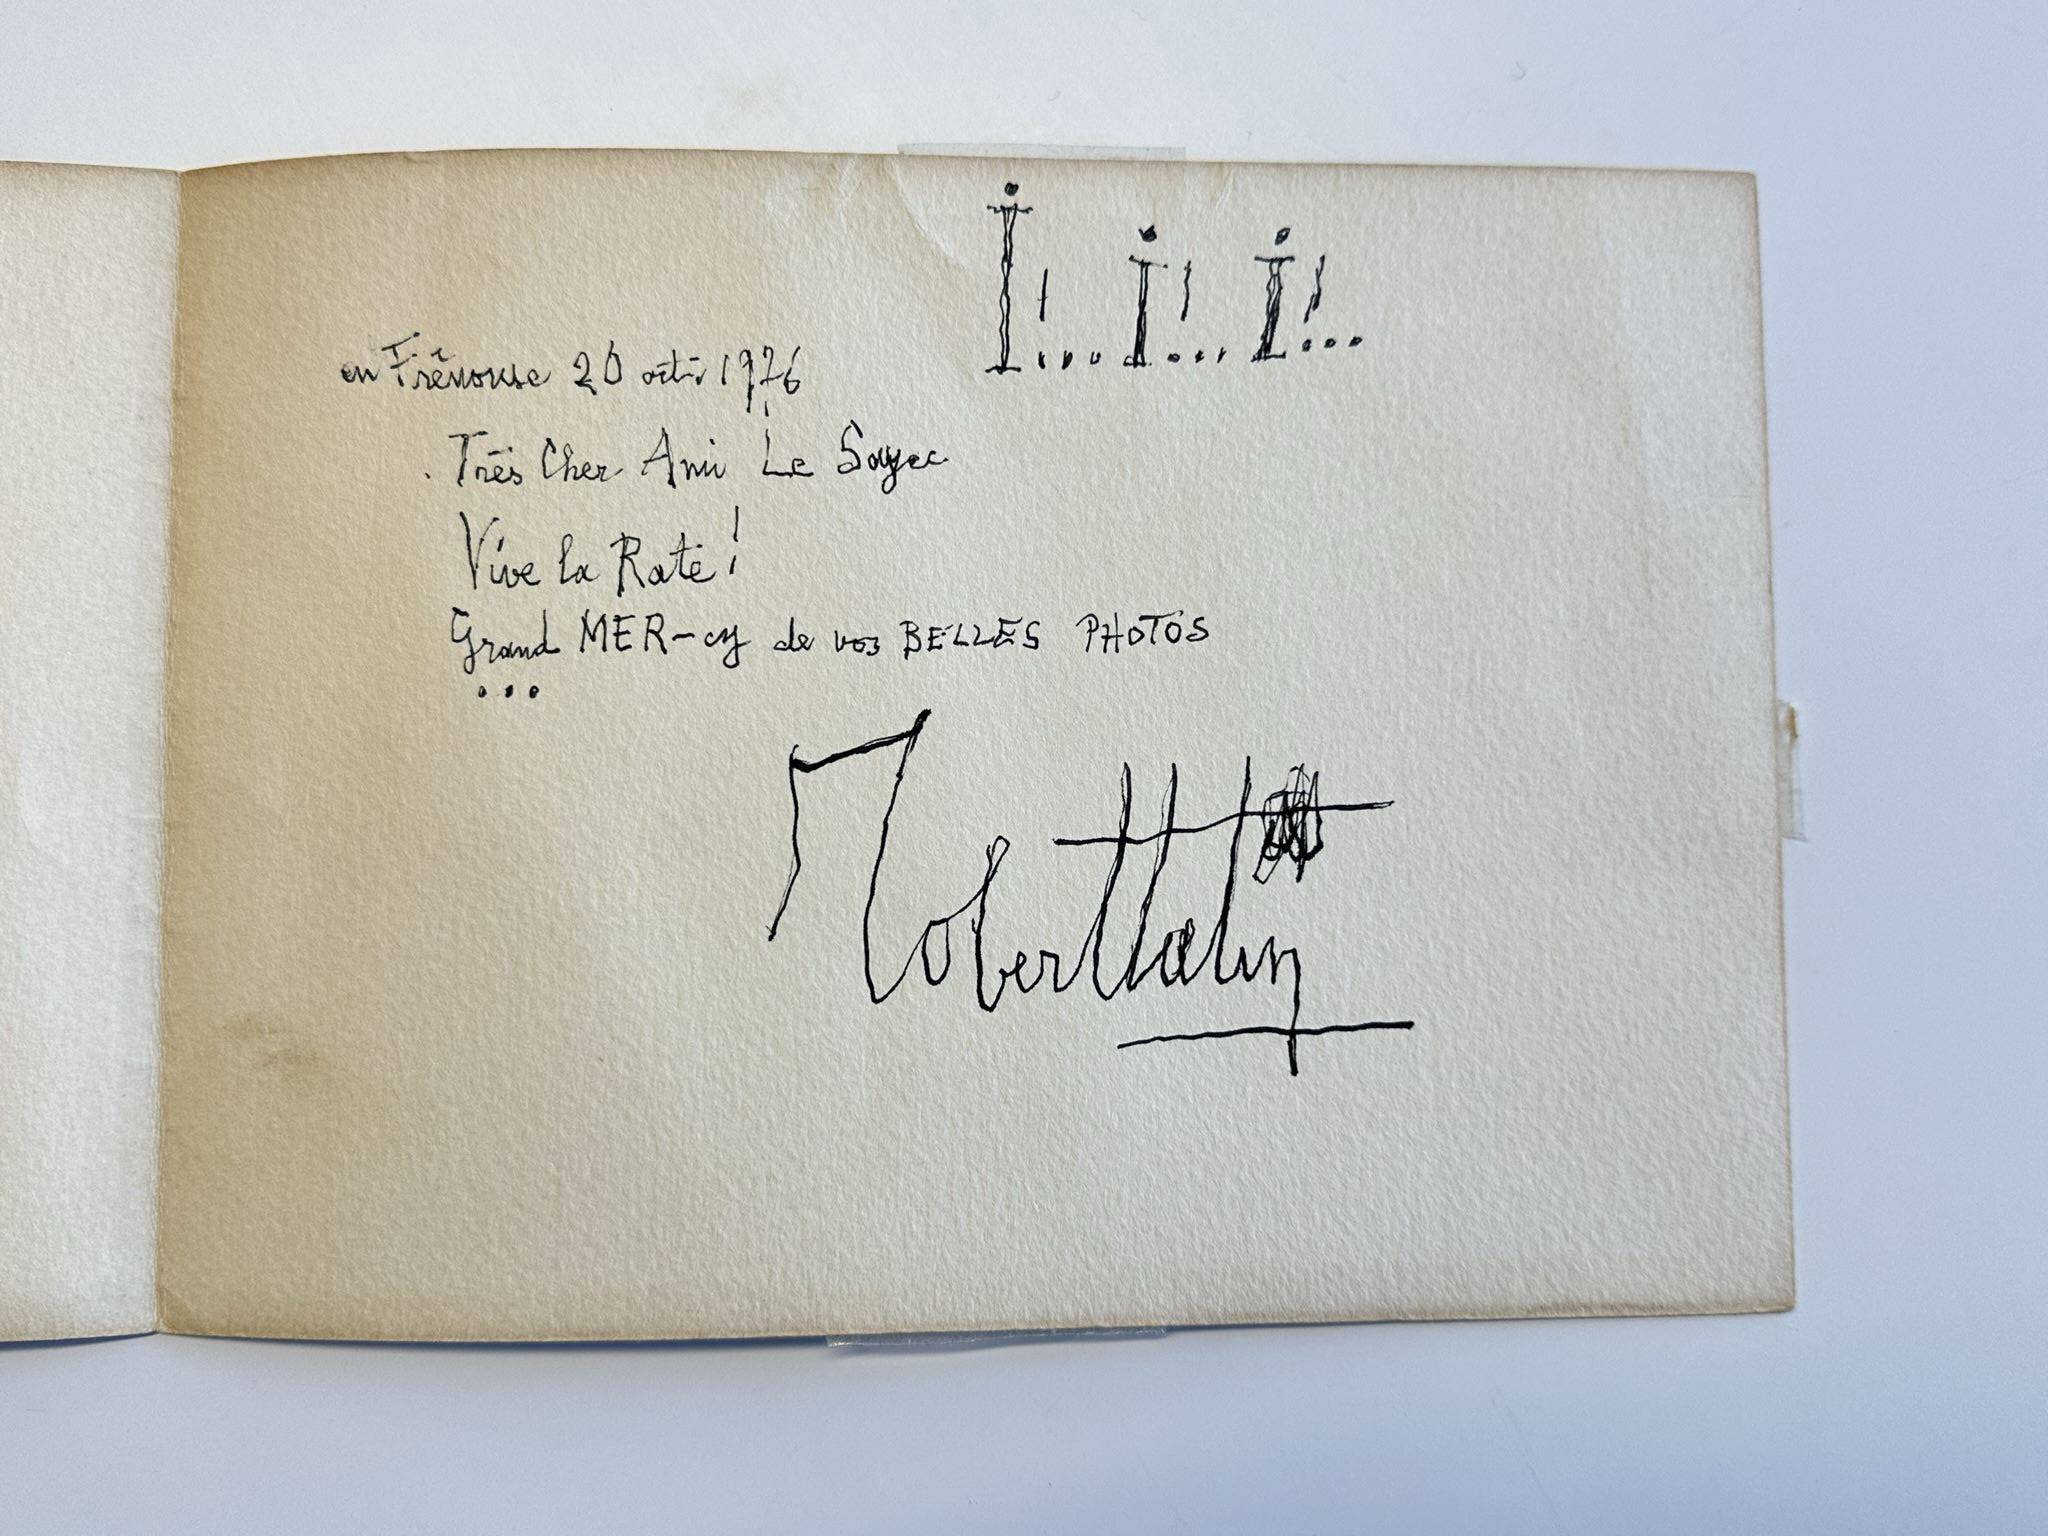 I!... I!... I!...
en Frênouse 20 oct. 1976
Très Cher Ami Le Sayec
Vive la Rate!
Grand MER-cy de vos BELLES PHOTOS
...
Robert Tatin